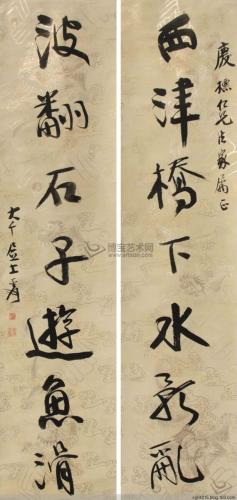 慶標仁兄法家屬正
西津橋下水聲亂
波翻石子遊魚滑
大千居士爰
博宝艺术网
www.artxun.com